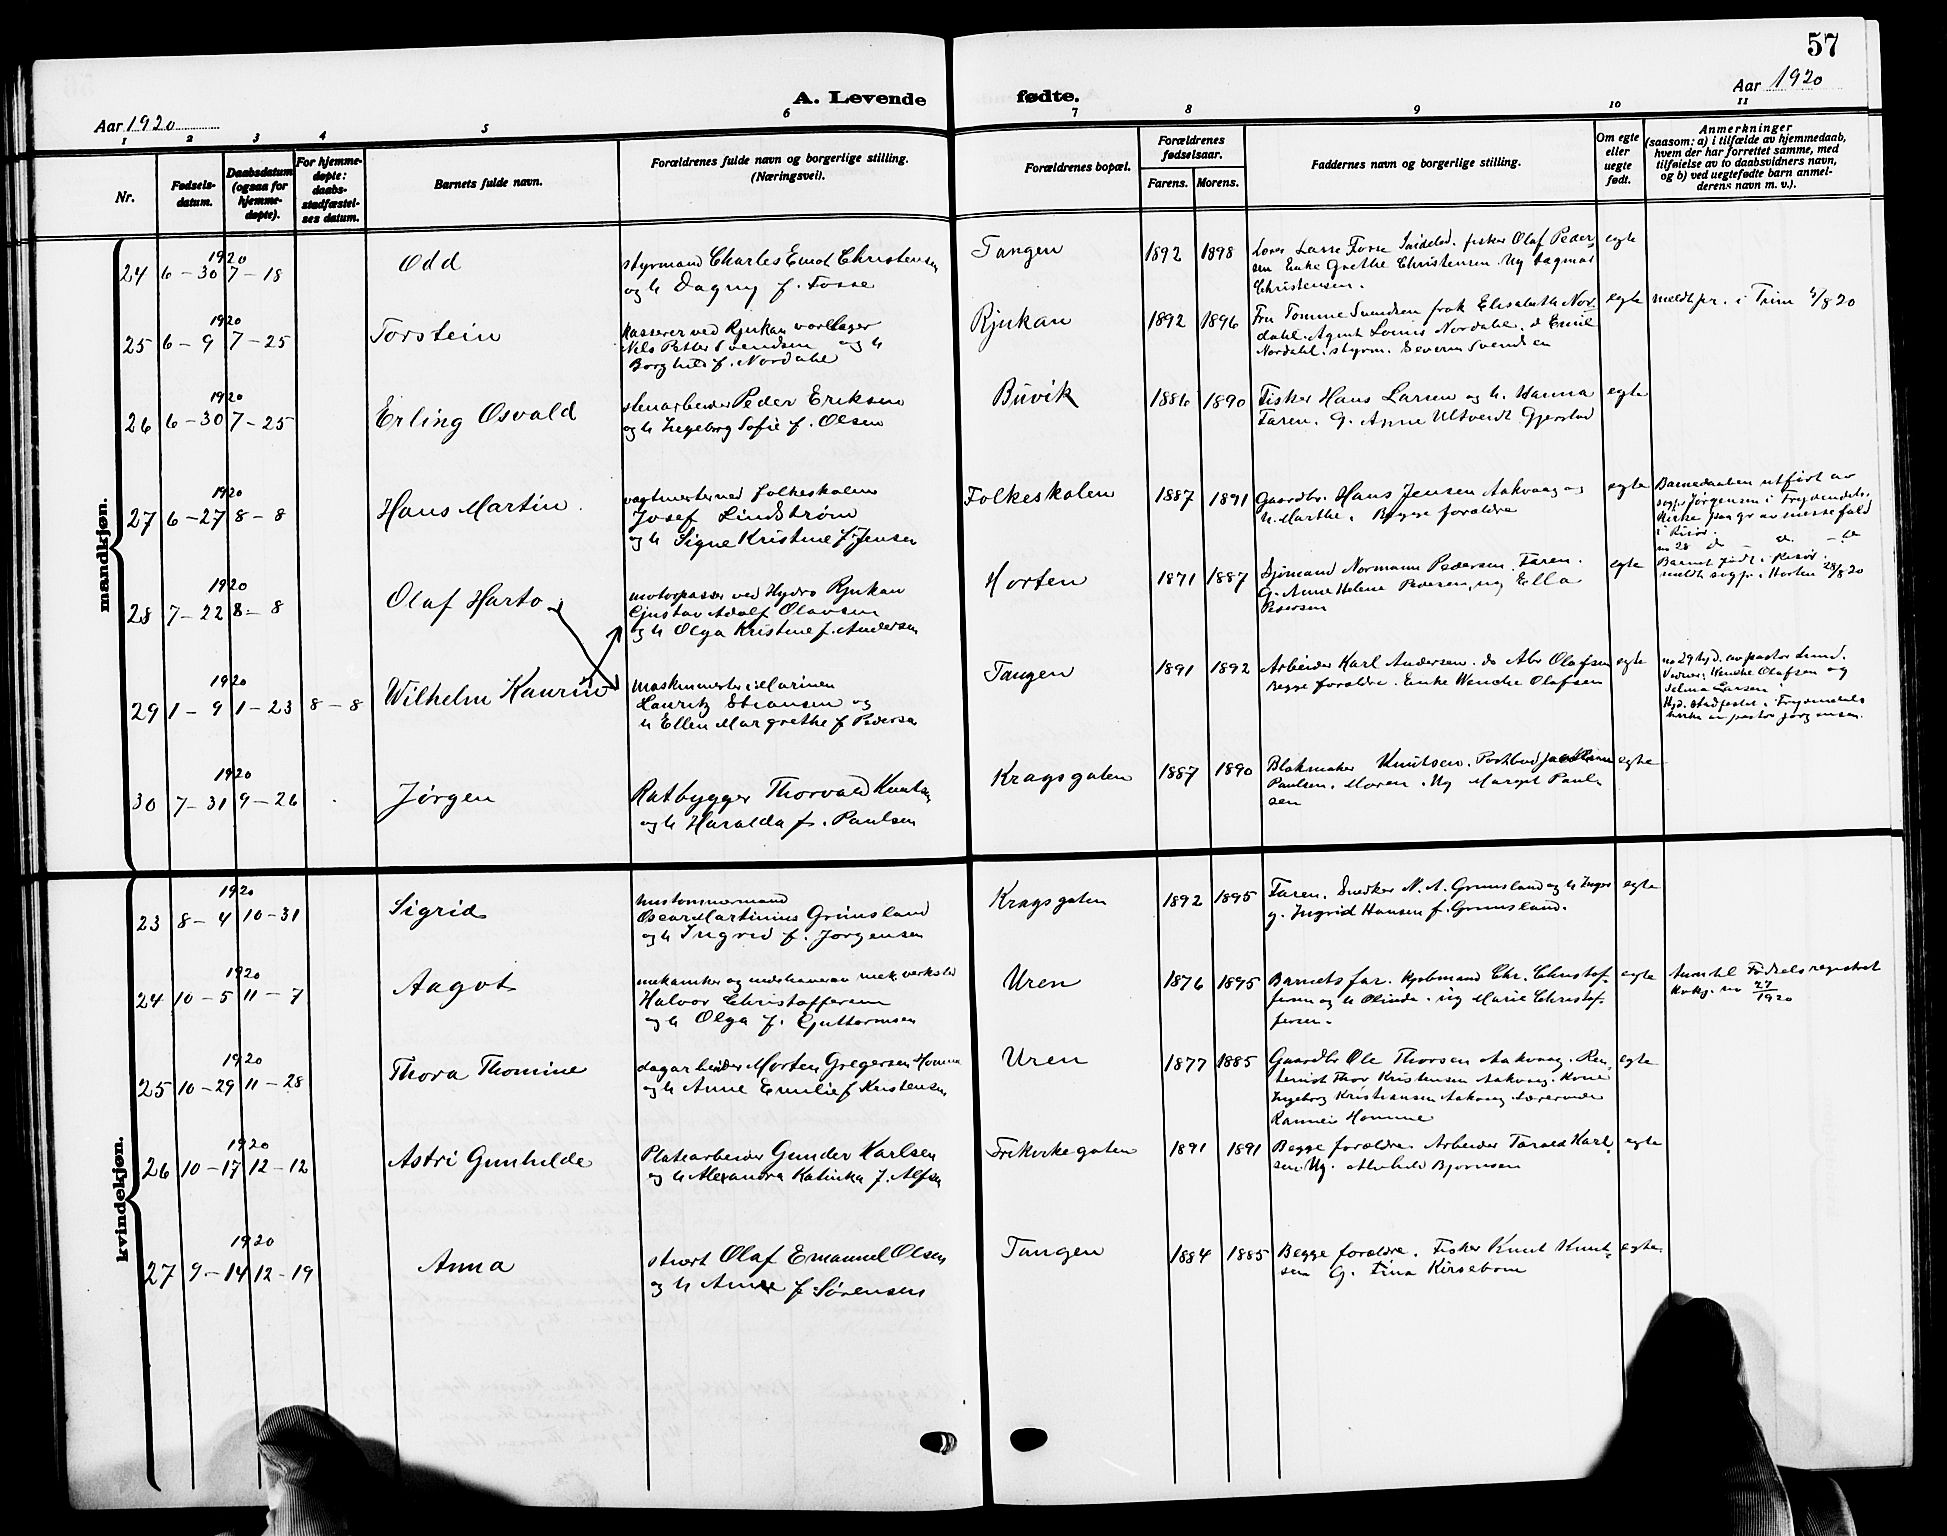 57
Aar 1920
A. Levende fødte.
Aar 1920
1 2 3 4 5 6 7 8 9 10 11
Nr.
Fødsels-
datum.
Daabsdatum
(ogsaa for
hjemme-
døpte).
For hjemme-
døpte:
daabs-
stadfæstel-
ses datum.
Barnets fulde navn.
Forældrenes fulde navn og borgerlige stilling.
(Næringsvei).
Forældrenes bopæl.
Forældrenes
fødselsaar.
Farens. Morens.
Faddernes navn og borgerlige stilling.
Om egte
eller
uegte
født.
Anmerkninger
(saasom: a) i tilfælde av hjemmedaab,
hvem der har forrettet samme, med
tilføielse av to daabsvidners navn,
og b) ved uegtefødte barn anmel-
derens navn m. v.).
mandkjøn.
1920
24 6-30 7-18 Odd
styrmand Charles Emil Christensen
og h Dagny f. Fosse
Tangen 1892 1898
Fosse Snidelod. fisker Olaf Peder-
sen Enke Grethe Christensen. Ug Dagmar
Christensen.
egte
1920
25 6-9 7-25 Torstein
kasserer ved Rjukan varelager
Nils Petter Svendsen og h
Borghild f. Nordahl
Rjukan 1892 1896
Fru Tomine Svendsen frøk Elisabeth Nor-
dahl. Agent Louis Nordahl. d Emil
Nordahl. styrm. Severin Svendsen
egte
meldt pr. i Tinn 4/8 20
1920
26 6-30 7-25 Erling Osvald
stenarbeider Peder Eriksen
og h Ingeborg Sofie f. Olsen
Buvik 1886 1890
Fisker Hans Larsen og h. Hanna
Faren. G. Anne Ultveidt Gjerstad
egte
1920
27 6-27 8-8 Hans Martin.
vagtmester ved folkeskolen
Josef Lindstrøm
og h Signe Kristine f. Jensen
Folkeskolen 1887 1891
Gaardbr. Hans Jensen Aakvaag og
h. Marthe. Begge forældre
egte
Barnedaaben utført av
sogpr Jørgensen i Frydendals
kirke paa gr av messefald
i Risør.
no 28 d d d
1920
28 7-22 8-8 Olaf Harto
motorpasser ved Hydro Rjukan
Gustav Adolf Olavsen
og h Olga Kristine f. Andersen
Horten 1871 1887
Sjømand Normann Pedersen. Faren.
G. Anne Helene Pedersen, ug Ella
Pedersen
egte
Barnet født i Risør.
meldt sogpr. i Horten 28/8 20
1920
29 1-9 1-23 8-8 Wilhelm Kaurin
maskinmester i Marinen
Lauritz Stiansen og
h Ellen Margrethe f Pedersen
Tangen 1891 1892
Arbeider Karl Andersen. do Abr Olafsen
Begge forældre. Enke Wenche Olafsen
egte
no 29 hjd. av pastor Lund.
Vidner: Wenche Olafsen og
Selma Larsen
Hjd. stadfestet i Frydendals
kirke av pastor Jørgensen.
1920
30 7-31 9-26 Jørgen
Ratbygger Thorvald Knutsen
og h Haralda f. Paulsen
Kragsgaten 1887 1890
Blokmaker Knutsen. Postbud
Paulsen. Moren. Ug Margit Paul-
sen
egte
kvindekjøn.
1920
23 8-4 10-31 Sigrid
hustømmermand
Oscar Martinius Grimsland
og h Ingrid f. Jørgensen
Kragsgaten 1892 1895
Faren. Snedker N. A. Grimsland og h Inger
g. Ingrid Hansen f. Grimsland.
egte
1920
24 10-5 11-7 Aagot
mekaniker og medehaver av mek. verksted
Halvor Christoffersen
og h Olga f. Guttormsen
Uren 1876 1895
Barnets far. Kjøbmand Chr. Christof-
fersen og h Olinde. ug Marie Christof-
fersen.
egte
Anm til Fødselsregistret
kvkj. no 27/1920
1920
25 10-29 11-28 Thora Thomine
dagarbeider Morten Gregersen Homme
og h Anne Emilie f Kristensen
Uren 1877 1885
Gaardbr Ole Thorsen Aakvaag. Ren-
tenist Thor Kristensen Aakvaag. Kone
Ingeborg Kristiansen Aakvaag Lærerinde
Rannei Homme
egte
1920
26 10-17 12-12 Astri Gunhilde
Platearbeider Gunder Karlsen
og h Alexandra Katinka f. Alfsen
Frikirkegaten 1891 1891
Begge forældre. Arbeider Tarald Karl-
sen. Ug. Alvhild Bjørnsen
egte
1920
27 9-14 12-19 Anna
stuert Olaf Emanuel Olsen
og h Anne f. Sørensen
Tangen 1884 1885
Begge forældre. Fisker Knut Knut-
sen G. Tina Kirsebom
egte